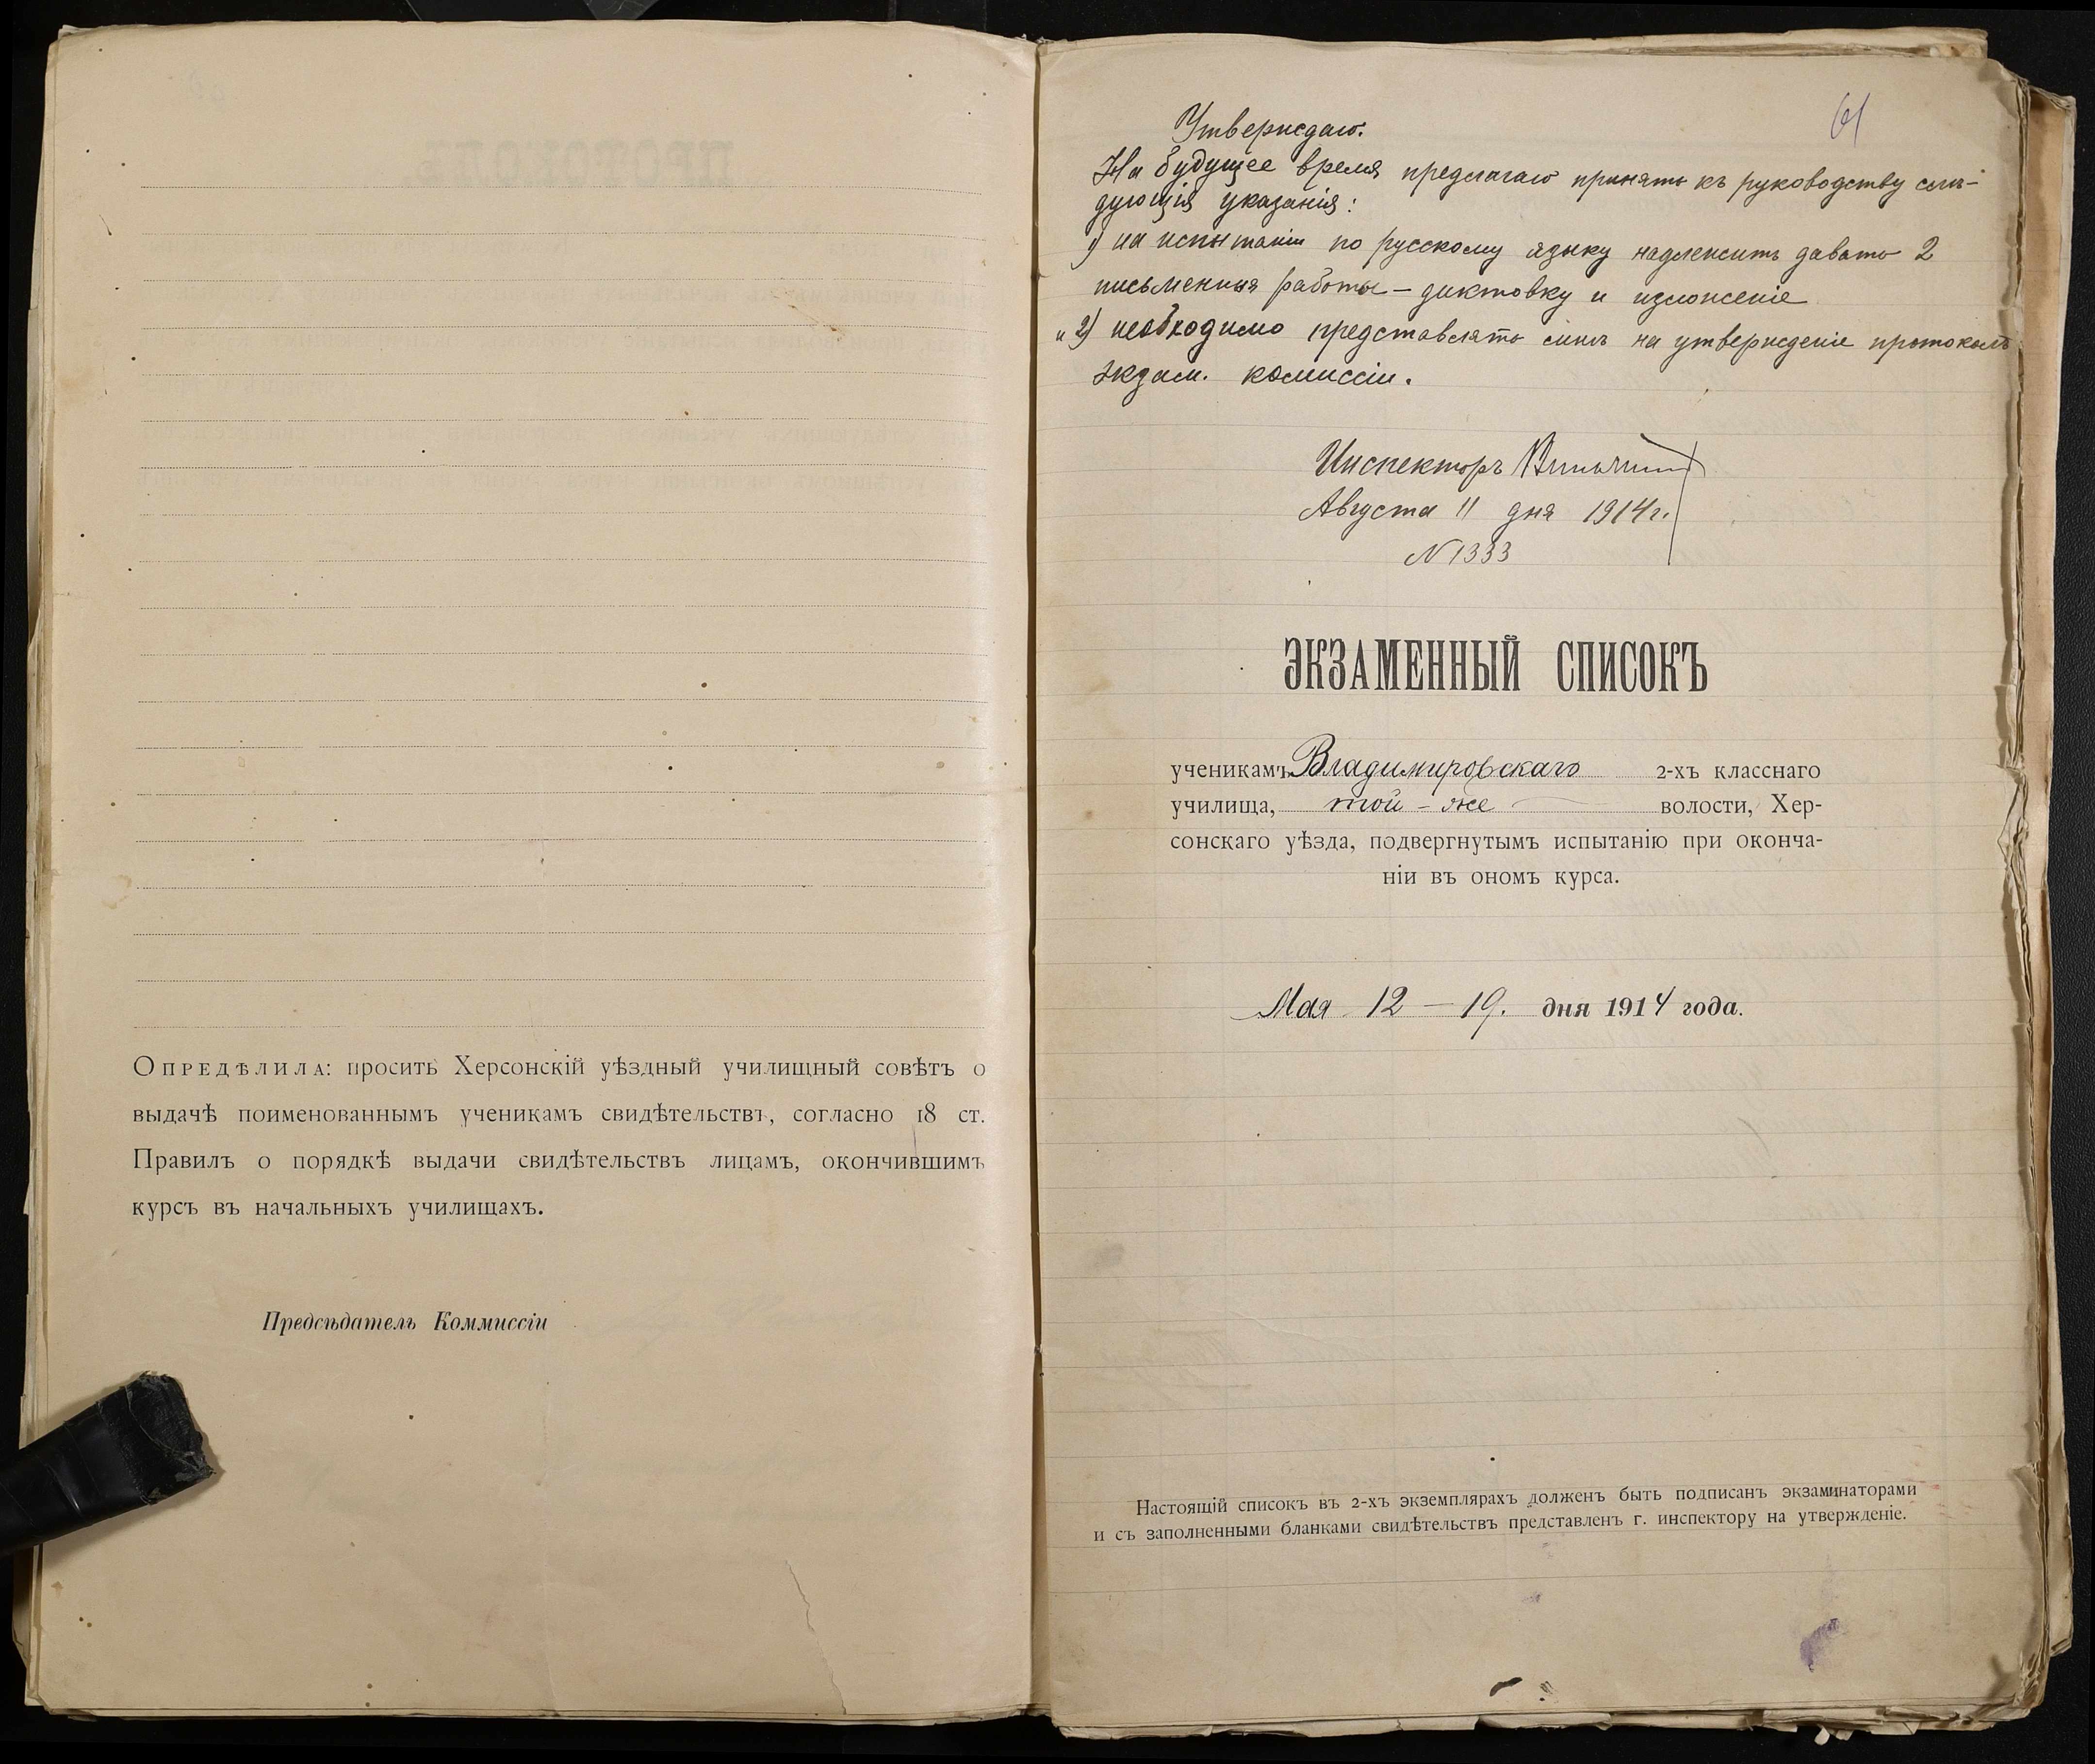 Опредѣлила: просить Херсонскій уѣздный училищный совѣтъ о
выдачѣ поименованнымъ ученикамъ свидѣтельствъ, согласно 18 ст.
Правилъ о порядкѣ выдачи свидѣтельствъ лицамъ, окончившимъ
курсъ въ начальныхъ училищахъ.
Предсѣдатель Коммиссіи
61
Утверждаю.
На будущее время предлагаю принять къ руководству слѣ-
дующія указанія:
1) на испытаніи по русскому языку надлежитъ давать 2
письменныя работы – диктовку и изложеніе
и 2) необходимо представлять мнѣ на утвержденіе протоколъ
экзам. комиссіи.
Инспекторъ
Августа 11 дня 1914 г.
N 1333
ЭКЗАМЕННЫЙ СПИСОКЪ
ученикамъ Владимировскаго 2-хъ класснаго
училища, той-же волости, Хер-
сонскаго уѣзда, подвергнутымъ испытанію при оконча-
ніи въ ономъ курса.
Мая 12 – 19. дня 1914 года.
Настоящій списокъ въ 2-хъ экземплярахъ долженъ быть подписанъ экзаминаторами
и съ заполненными бланками свидѣтельствъ представленъ г. инспектору на утвержденіе.